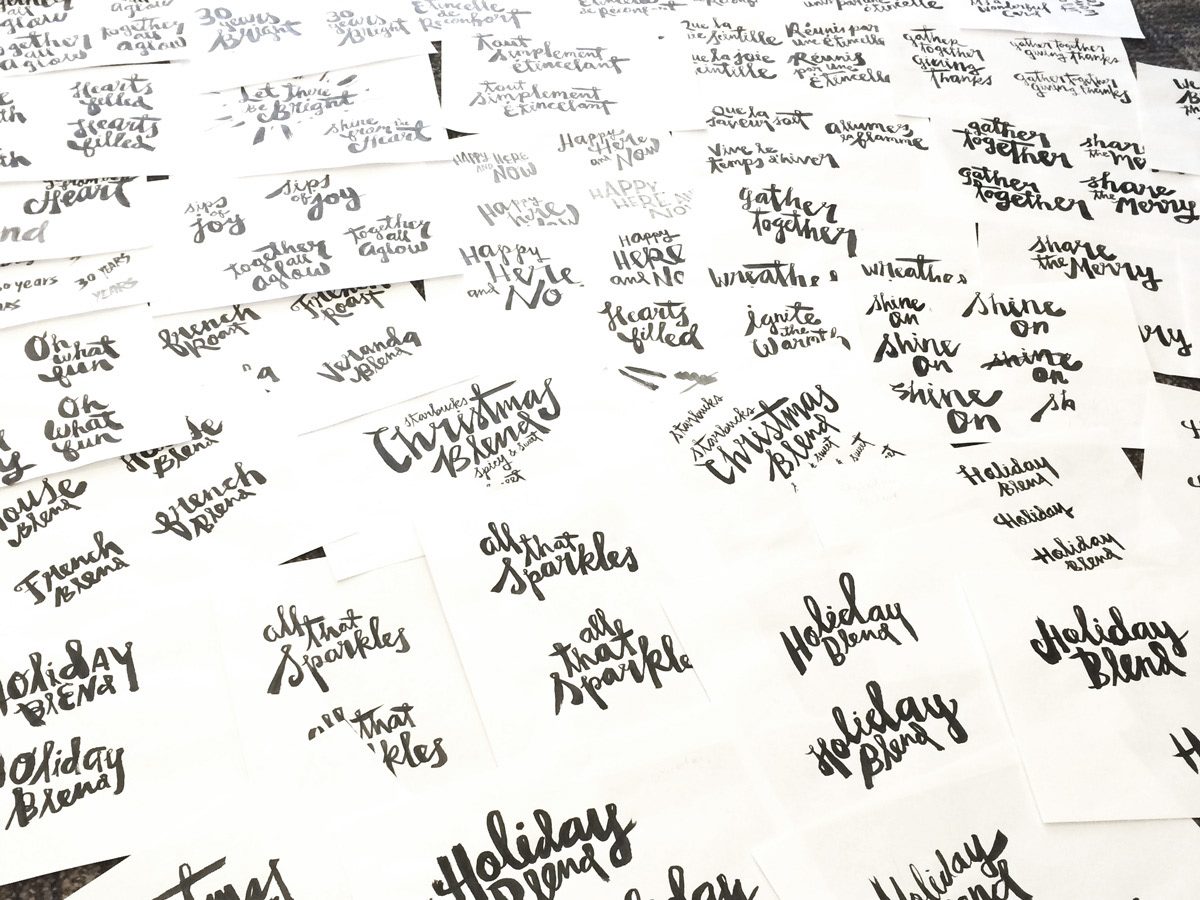 together
all
aglow
together
all
aglow
30
years
Bright
30
years
Bright
Etincelle
de Réconfort
Que la
scintille
Réunis par
une étincelle
ue la joie
Réunis
par une
Étincelle
gather
together
giving
thanks
gather together
giving thanks
gather together
giving thanks
Hearts
filled
Hearts
filled
Let There
be Bright
shine
from the
Heart
tout
simplement
étincelant
tout
simplement
étincelant
Que la
saveur soit
Vive le
temps d'hiver
allumez
la flamme
gather
together
share
gather
together
share
the Merry
share
the Merry
Heart
sips
of
joy
sips
of
joy
together
all
aglow
together
all
aglow
Happy Here
and
Now
Happy Here
and Now
Happy
Here
Happy
Here
Happy
Here
and
No
Happy
Here
and No
gather
together
wreathe
wreathe
30 YEARS
YEARS
Oh
what
fun
Oh
what
fun
french
roast
French
roast
Veranda
Blend
Hearts
filled
ignite
the
Warmth
shine
on
Shine
on
Shine
On
shine
on
Shine
On
sh
Starbucks
Christmas
Blend
spicy & sweet
Starbucks
Starbucks
Christmas
Blend
& sweet
sweet
Blend
ouse
Blend
french
Blend
French
Blend
Holiday
Blend
Holiday
Holiday
Blend
all
that
Sparkles
all
that
Sparkles
all
that
Sparkle
that
kles
Holiday
Blend
Holiday
Blend
Holiday
Blend
Holiday
Blend
Holiday
Blend
Holiday
Blend
tmas
Holiday